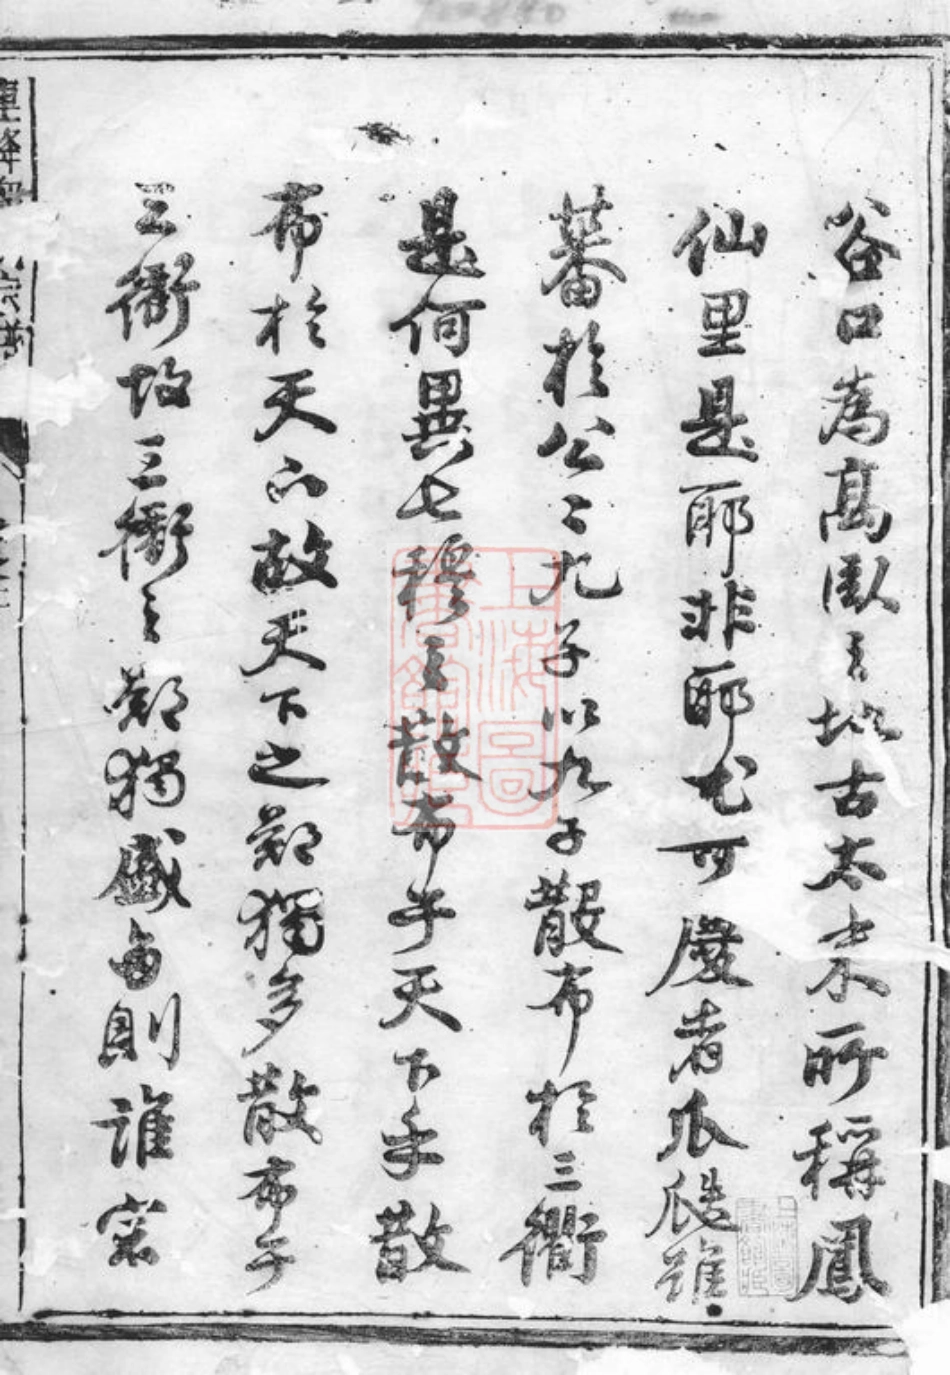 谷口為高臥之地古太末所稱鳳
仙里是耶非耶尤可度者瓜瓞雖
蕃於公公九子以九子散布於三衢
是何異七穆之散布于天下乎散
布於天下故天下之鄭獨多散布于
三衢故三衢之鄭獨盛則誰